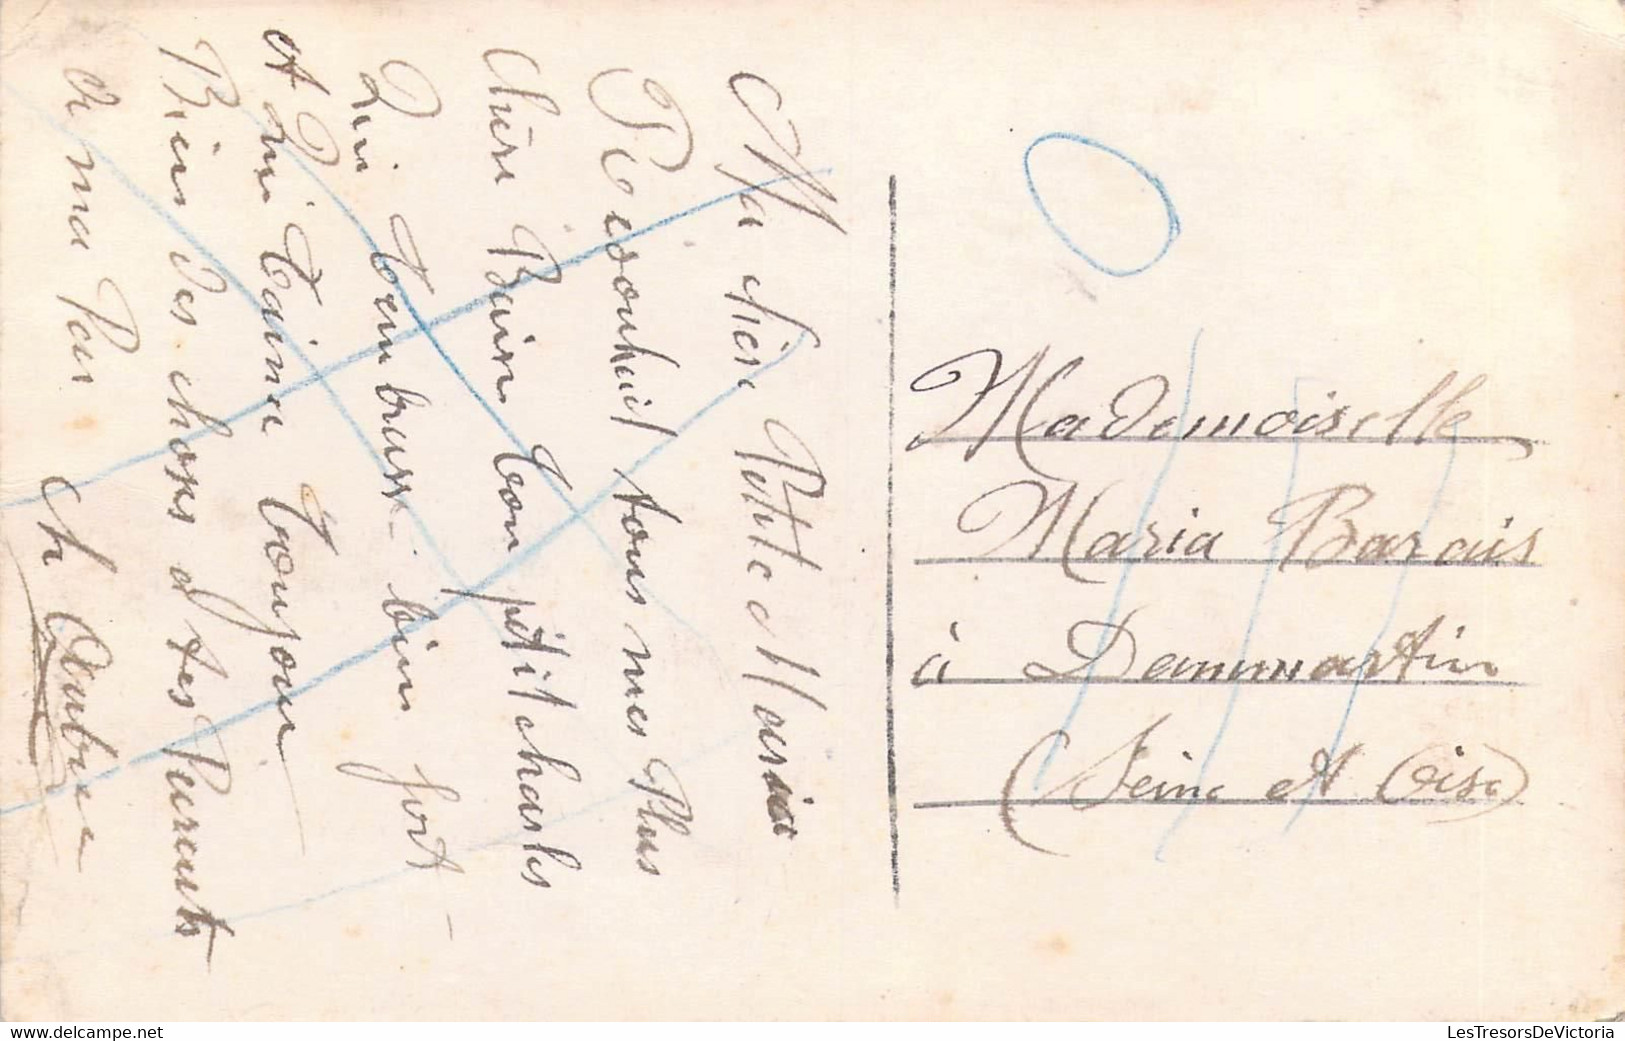 Ma chère Petite Maria
Resouhait tous mes Plus
Chère Baire ton petit charles
Qui t'embrasse bien fort
et Qui t'aime toujour
Bien des choses a tes Parents
de ma Par
Ch Aubree
Mademoiselle
Maria Barais
à Dammartin
(Seine et Oise)
LesTresorsDeVictoria